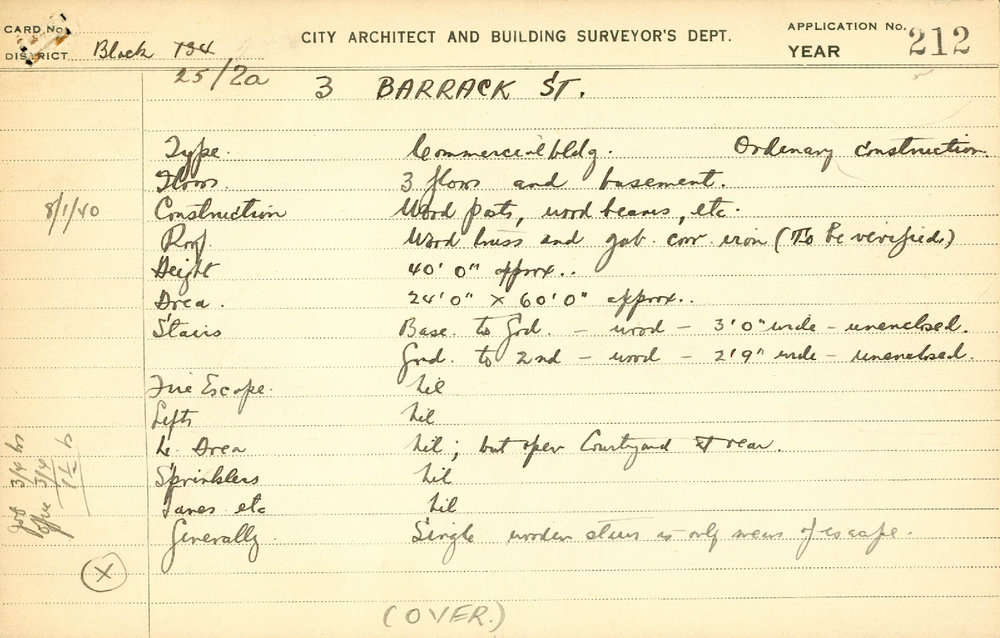 CARD No.
CITY ARCHITECT AND BUILDING SURVEYOR'S DEPT.
APPLICATION No. 212
DISTRICT Block 134
YEAR
25/2a 3 BARRACK ST.
Type. Commercial bldg. Ordenary construction.
Floors. 3 floors and basement.
8/1/40 Construction Wood posts, wood beams, etc.
Roof. Wood truss and galv. corr. iron (To be verified)
Height 40' 0" approx..
Area. 24'0" x 60'0" approx..
Stairs Base. to Grd. - wood - 3'0" wide - unenclosed.
Grd. to 2nd - wood - 2'9" wide - unenclosed.
Fire Escape. Nil
Lifts Nil
Lt. Area Nil; but open Courtyard at rear.
Sprinklers Nil
Lanes etc Nil
Generally. Single wooden stair is only means of escape.
Job 3/4 hrs
Office 3/4
X
(OVER.)